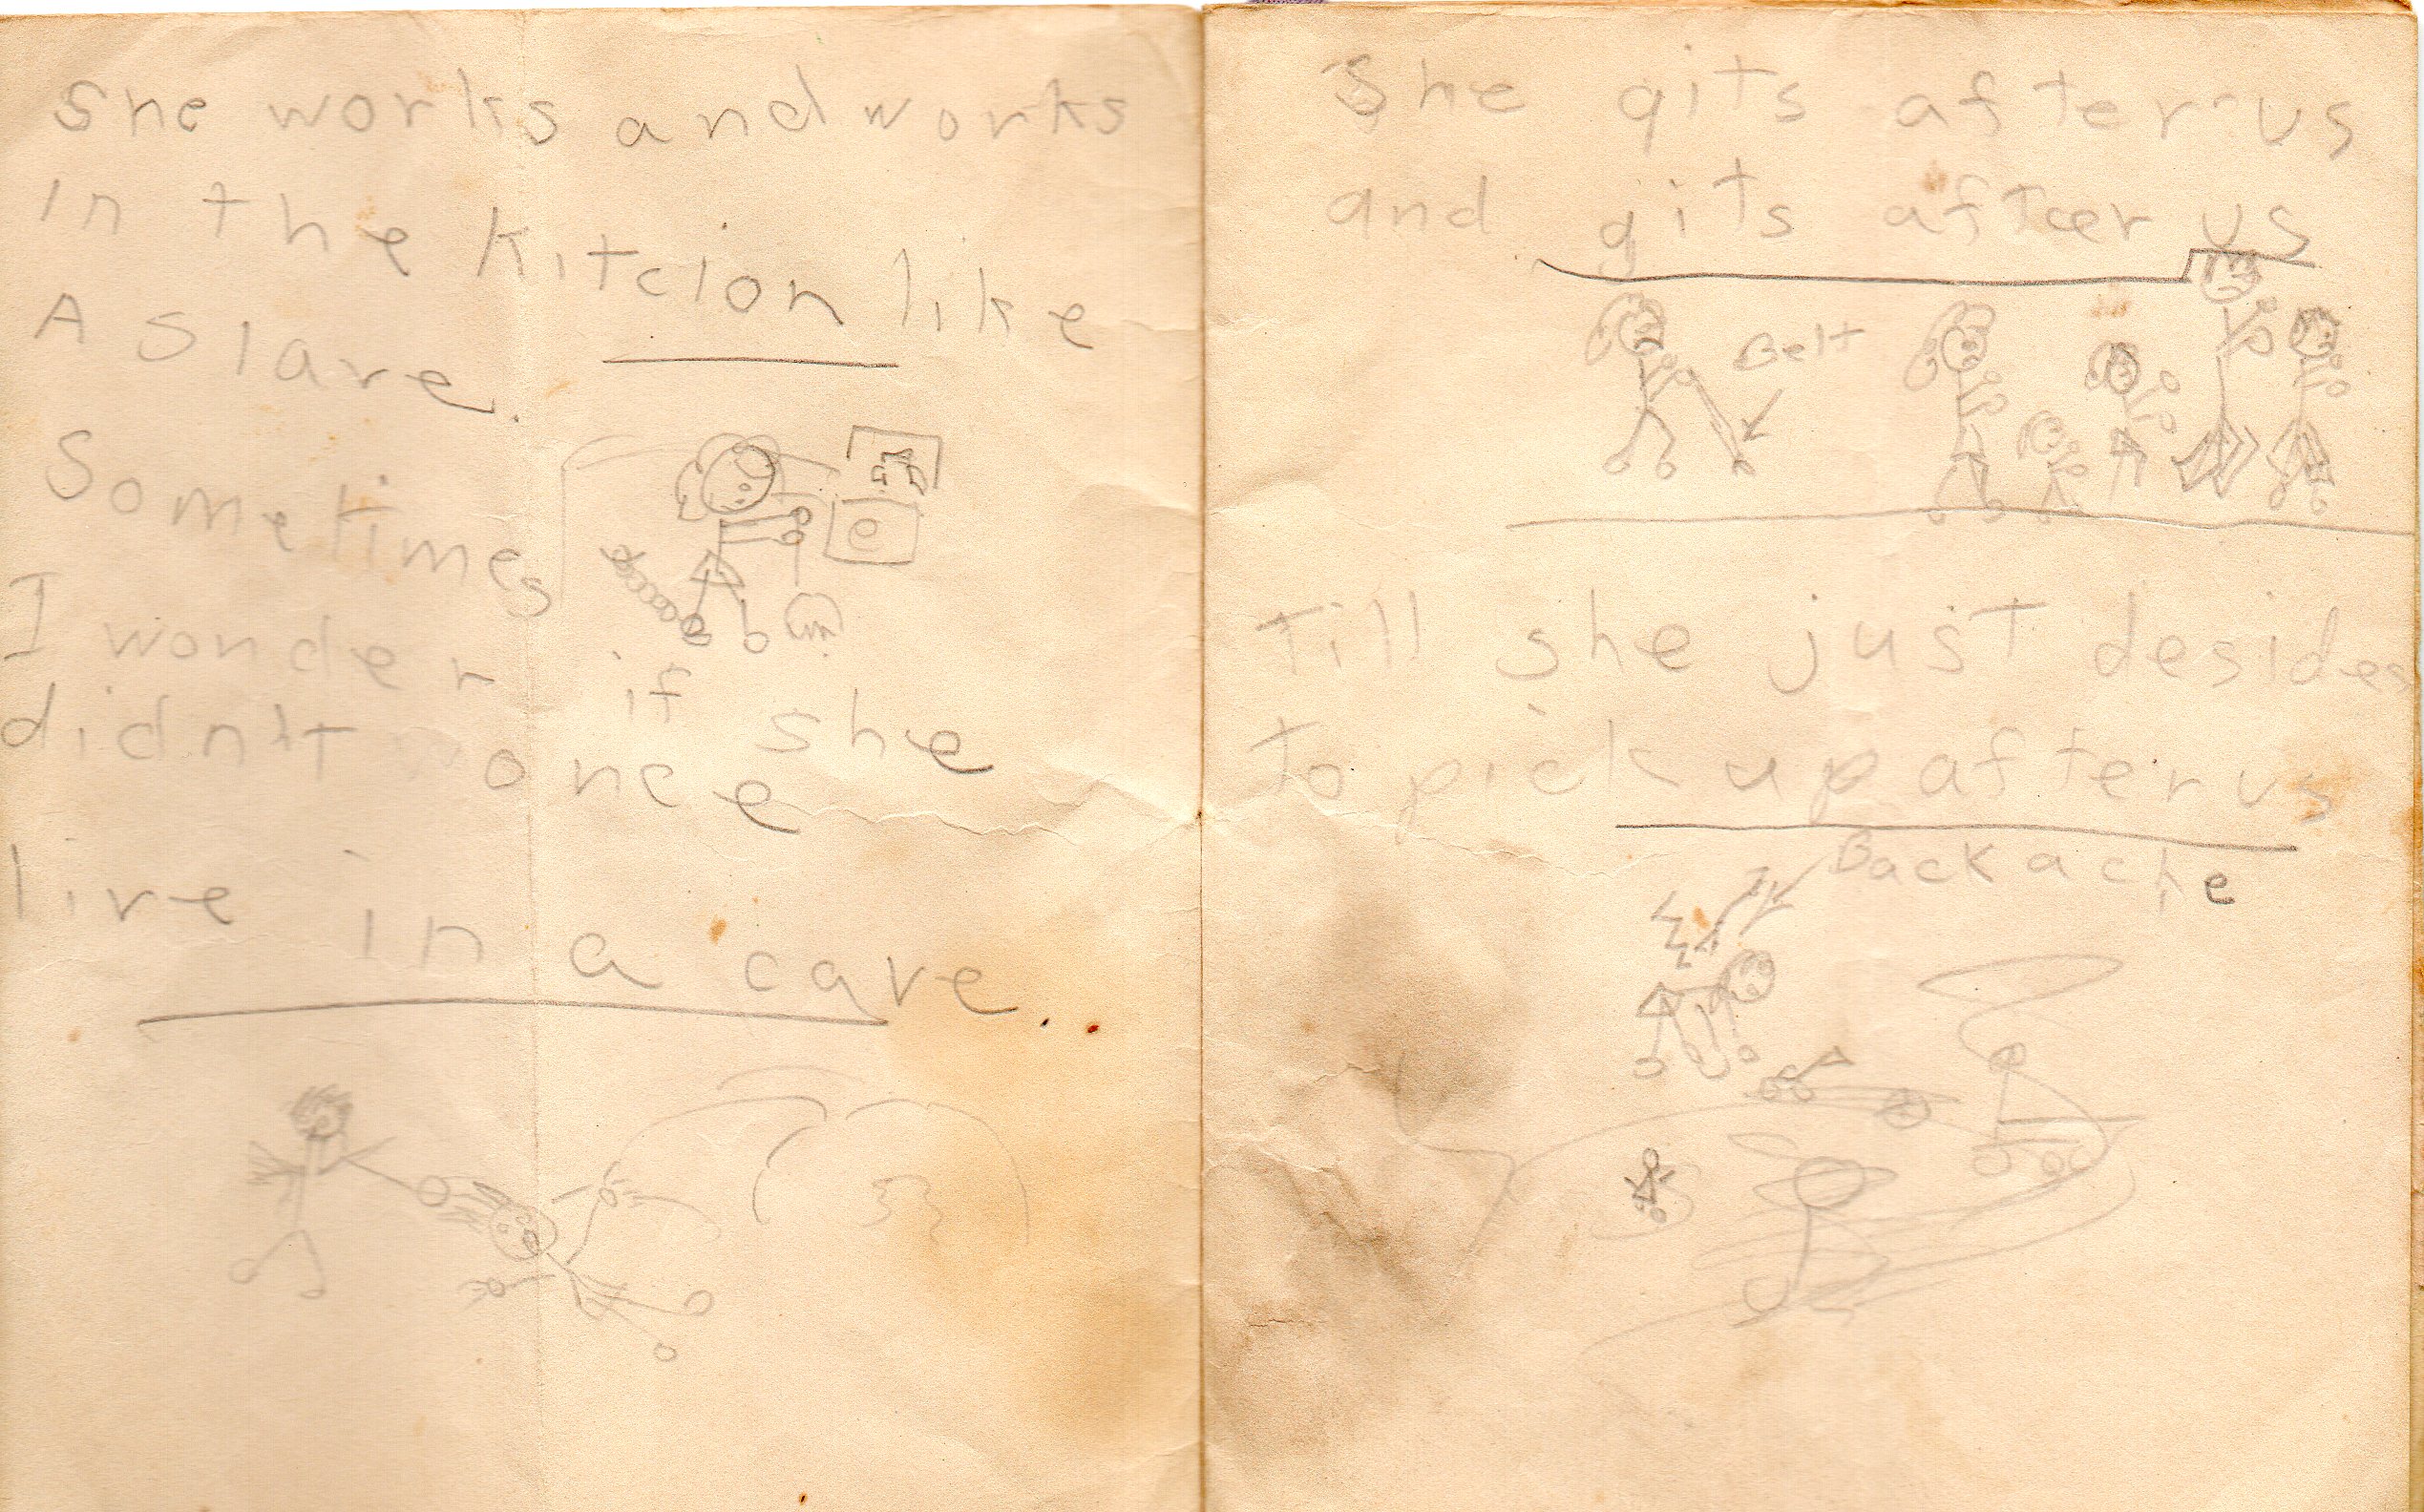 She works and works
in the Kitcion like
A slare.
Sometimes
I wonder if she
didn't once
live in a cave..
e
She gits after us
and gits after us
Belt
Till she just desides
to pick up after us
Backache